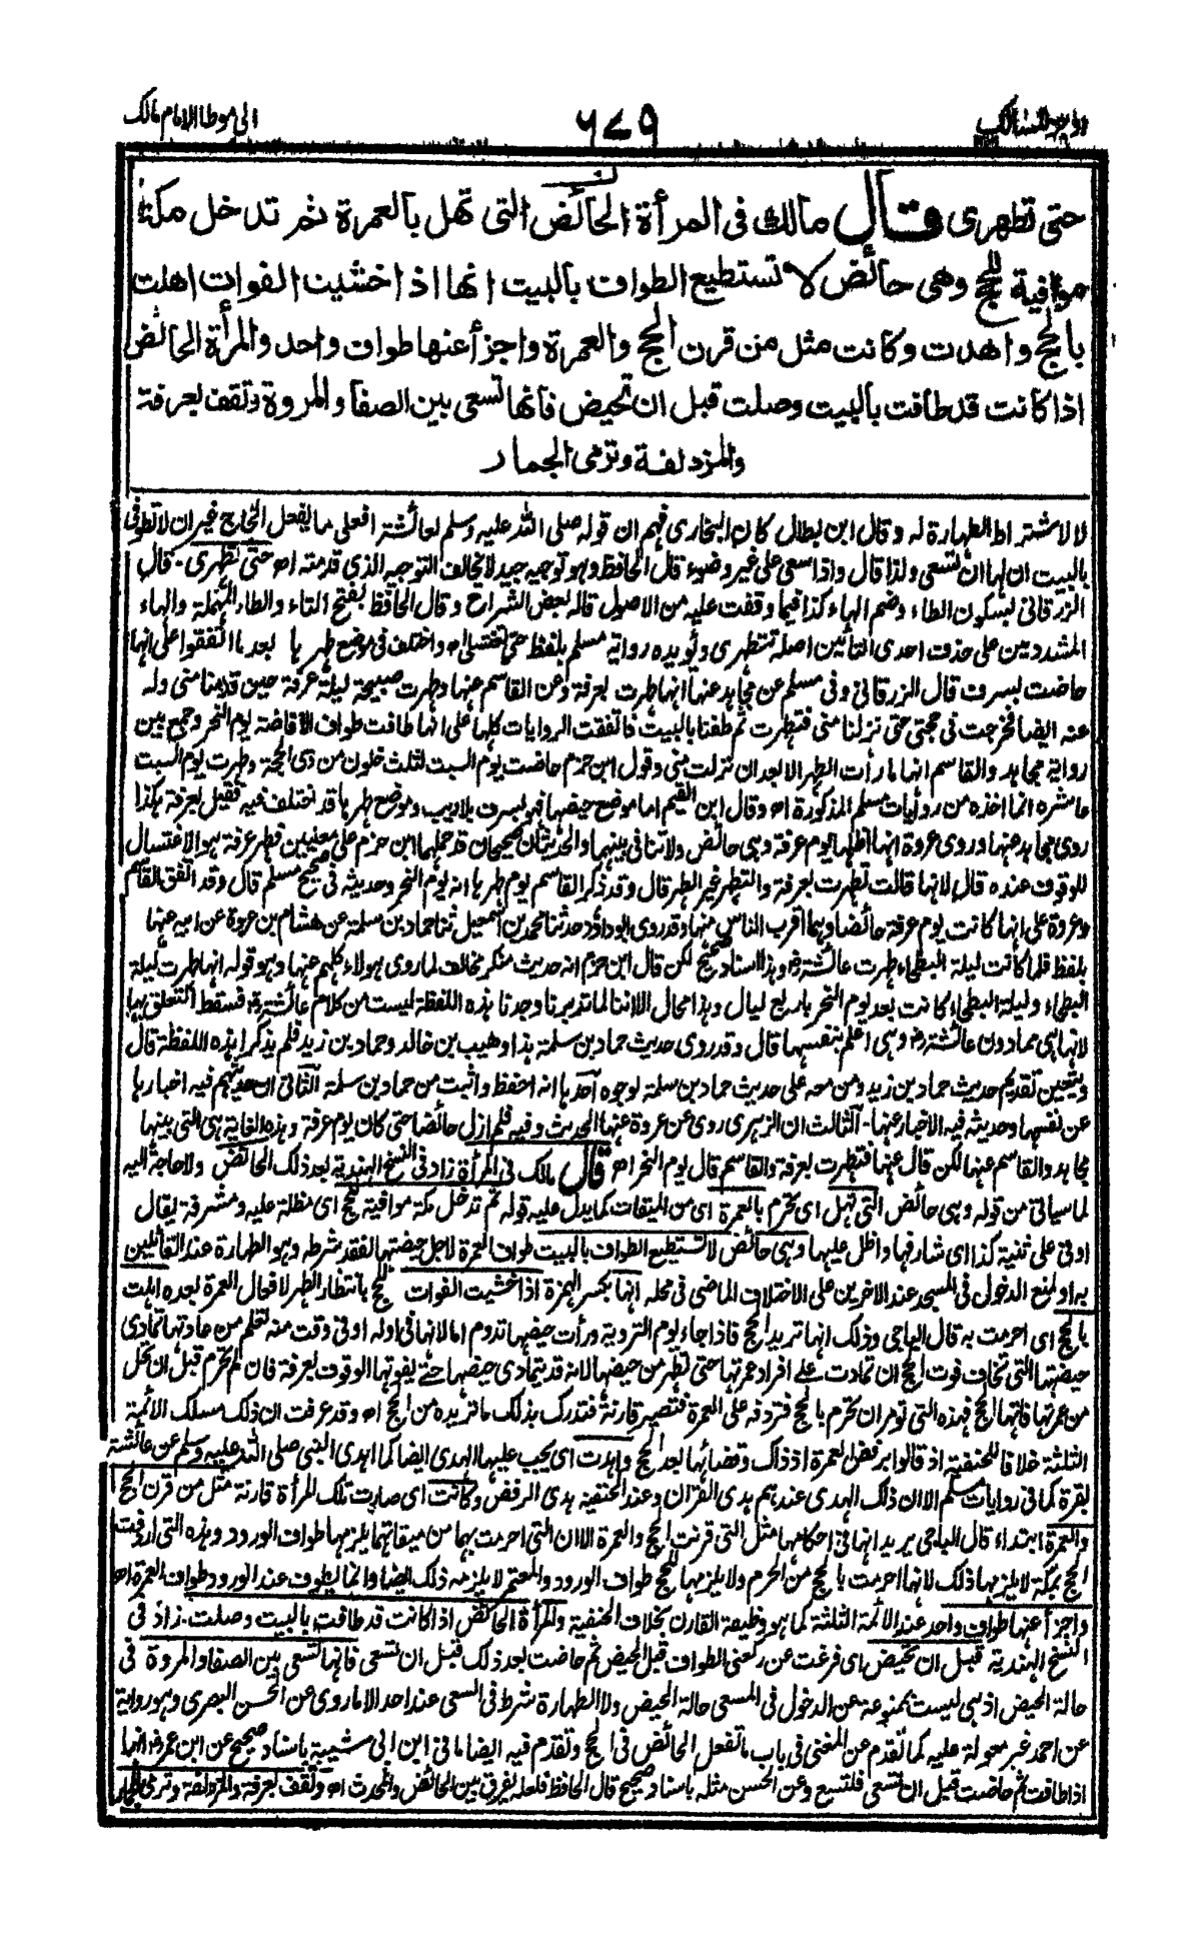 اوجز المسالك
٦٧٩
الى موطا الامام مالك
حتى تطهرى قال مالك فى المرأة الحائض التى تهل بالعمرة ثم تدخل مكة
موافية للحج وهى حائض لا تستطيع الطواف بالبيت انها اذا خشيت الفوات اهلت
بالحج واهدت وكانت مثل من قرن الحج والعمرة واجزأ عنها طواف واحد والمرأة الحائض
اذا كانت قد طافت بالبيت وصلت قبل ان تحيض فانها تسعى بين الصفا والمروة وتقف بعرفة
والمزدلفة وترمى الجمار
لا لاشتراط الطهارة له وقال ابن بطال كان البخارى فهم ان قوله صلى الله عليه وسلم لعائشة افعلى ما يفعل الحاج غير ان لا تطوفى
بالبيت ان لها ان تسعى ولذا قال واذا سعى على غير وضوء قال الحافظ وهو توجيه جيد لا يخالف التوجيه الذى قدمته اه حتى تطهرى - قال
الزرقانى بسكون الطاء وضم الهاء كذا فيما وقفت عليه من الاصول قاله بعض الشراح وقال الحافظ بفتح التاء والطاء المهملة والهاء
المشددتين على حذف احدى التائين اصله تتطهرى ويؤيده رواية مسلم بلفظ حتى تغتسلى اه واختلف فى موضع طهرها بعد ما اتفقوا على انها
حاضت بسرف قال الزرقانى وفى مسلم عن مجاهد عنها انها طهرت بعرفة وعن القاسم عنها وطهرت صبيحة ليلة عرفة حين قدمنا منى وله
عنه ايضا فخرجت فى حجتى حتى نزلنا منى فتطهرت ثم طفنا بالبيت فاتفقت الروايات كلها على انها طافت طواف الافاضة يوم النحر وجمع بين
رواية مجاهد والقاسم انها ما رأت الطهر الا بعد ان نزلت منى وقول ابن حزم حاضت يوم السبت لثلث خلون من ذى الحجة وطهرت يوم السبت
عاشره انما اخذه من روايات مسلم المذكورة اه وقال ابن القيم اما موضع حيضها فهو بسرف بلا ريب وموضع طهرها قد اختلف فيه فقيل بعرفة هكذا
روى مجاهد عنها وروى عروة انها اظلها يوم عرفة وهى حائض ولا تنافى بينهما والحديثان صحيحان قد حملهما ابن حزم على معنيين فطهر عرفة هو الاغتسال
للوقوف عنده قال لانها قالت تطهرت بعرفة والتطهر غير الطهر قال وقد ذكر القاسم يوم طهرها انه يوم النحر وحديثه فى صحيح مسلم قال وقد اتفق القاسم
وعروة على انها كانت يوم عرفة حائضا وهما اقرب الناس منها وقد روى ابو داؤد حدثنا محمد بن اسمعيل ثنا حماد بن سلمة عن هشام بن عروة عن ابيه عنها
بلفظ فلما كانت ليلة البطحاء طهرت عائشة رض وهذا اسناد صحيح لكن قال ابن حزم انه حديث منكر مخالف لما روى هولاء كلهم عنها وهو قوله انها طهرت ليلة
البطحاء وليلة البطحاء كانت بعد يوم النحر باربع ليال وهذا محال الا اننا لما تدبرنا وجدنا هذه اللفظة ليست من كلام عائشة رض فسقط التعلق بها
لانها هى مما دون عائشة رض وهى اعلم بنفسها قال وقد روى حديث حماد بن سلمة هذا وهيب بن خالد وحماد بن زيد فلم يذكرا هذه اللفظة قال
ويتعين تقديم حديث حماد بن زيد ومن معه على حديث حماد بن سلمة لوجوه احدها انه احفظ واثبت من حماد بن سلمة الثانى ان حديثهم فيه اخبارها
عن نفسها وحديثه فيه الاخبار عنها - الثالث ان الزهرى روى عن عروة عنها الحديث وفيه فلم ازل حائضا حتى كان يوم عرفة وهذه الغاية هى التى بينها
مجاهد والقاسم عنها لكن قال عنها فتطهرت بعرفة والقاسم قال يوم النحر اه قال مالك فى المرأة زاد فى النسخ الهندية بعد ذلك الحائض ولا حاجة اليه
لما سياتى من قوله وهى حائض التى تهل اى تحرم بالعمرة اى من الميقات كما يدل عليه قوله ثم تدخل مكة موافية للحج اى مظلة عليه ومشرفة يقال
اوفى على ثنية كذا اى شارفها واظل عليها وهى حائض لا تستطيع الطواف بالبيت طواف العمرة لاجل حيضتها لفقد شرطه وهو الطهارة عند القائلين
به او لمنع الدخول فى المسجد عند الاخرين على الاختلاف الماضى فى محله انها بكسر الهمزة اذا خشيت الفوات للحج بانتظار الطهر لافعال العمرة بعده اهلت
بالحج اى احرمت به قال الباجى وذلك انها تريد الحج فاذا جاء يوم التروية ورأت حيضها تدوم اما لانها فى اوله او فى وقت منه تعلم من عادتها تمادى
حيضتها التى تخاف فوت الحج ان تمادت على افراد عمرتها حتى تطهر من حيضها لانه قد يتمادى حيضها حتى يفوتها الوقوف بعرفة فان لم تحرم قبل ان تحل
من عمرتها فاتها الحج فهذه التى تومر ان تحرم بالحج فتردفه على العمرة فتصير قارنة فتدرك بذلك ما تريده من الحج اه وقد عرفت ان ذلك مسلك الائمة
الثلثة خلافا للحنفية اذ قالوا برفض العمرة اذ ذاك وقضائها بعد الحج واهدت اى يجب عليها الهدى ايضا كما اهدى النبى صلى الله عليه وسلم عن عائشة
بقرة كما فى روايات مسلم الا ان ذلك الهدى عندهم هدى القران وعند الحنفية هدى الرفض وكانت اى صارت تلك المرأة قارنة مثل من قرن الحج
والعمرة ابتداء قال الباجى يريد انها فى احكامها مثل التى قرنت الحج والعمرة الا ان التى احرمت بهما من ميقاتهما يلزمها طواف الورود وهذه التى اردفت
الحج بمكة لا يلزمها ذلك لانها احرمت بالحج من الحرم ولا يلزمها للحج طواف الورود والمعتمر لا يلزمه ذلك ايضا وانما يطوف عند الورود طواف العمرة اه
واجزأ عنها طواف واحد عند الائمة الثلثة كما هو وظيفة القارن بخلاف الحنفية والمرأة الحائض اذا كانت قد طافت بالبيت وصلت - زاد فى
النسخ الهندية قبل ان تحيض اى فرغت عن ركعتى الطواف قبل الحيض ثم حاضت بعد ذلك قبل ان تسعى فانها تسعى بين الصفا والمروة فى
حالة الحيض اذ هى ليست بممنوعة عن الدخول فى المسعى حالة الحيض ولا الطهارة شرط فى السعى عند احد الا ما روى عن الحسن البصرى وهو رواية
عن احمد غير معولة عليه كما تقدم عن المغنى فى باب ما تفعل الحائض فى الحج وتقدم فيه ايضا ما فى ابن ابى شيبة باسناد صحيح عن ابن عمر رض انها
اذا طافت ثم حاضت قبل ان تسعى فلتسع وعن الحسن مثله باسناد صحيح قال الحافظ فلعله يفرق بين الحائض والمحدث اه وتقف بعرفة والمزدلفة وترمى الجمار